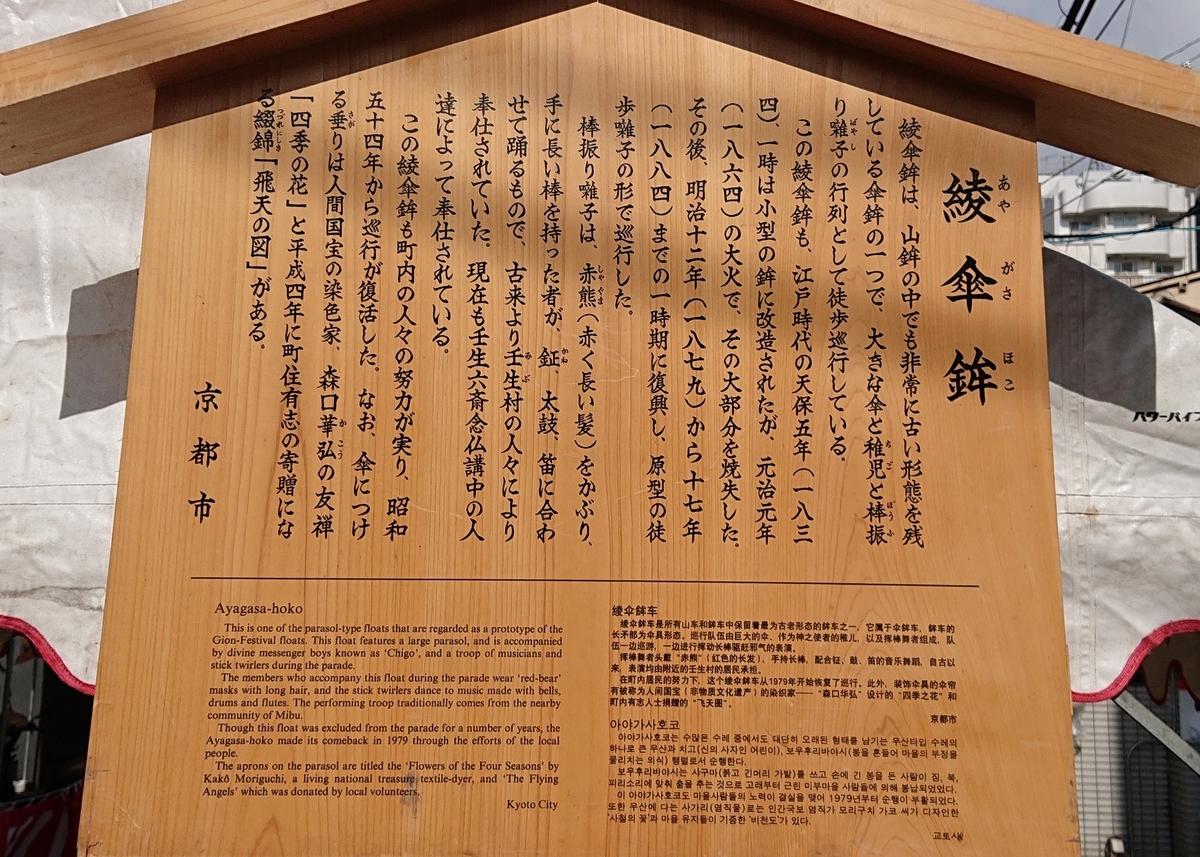 綾傘鉾
あや がさ ほこ
綾傘鉾は、山鉾の中でも非常に古い形態を残
している傘鉾の一つで、大きな傘と稚児と棒振
り囃子の行列として徒歩巡行している。
この綾傘鉾も、江戸時代の天保五年(一八三
四)、一時は小型の鉾に改造されたが、元治元年
(一八六四)の大火で、その大部分を焼失した。
その後、明治十二年(一八七九)から十七年
(一八八四)までの一時期に復興し、原型の徒
歩囃子の形で巡行した。
棒振り囃子は、赤熊(赤く長い髪)をかぶり、
手に長い棒を持った者が、鉦、太鼓、笛に合わ
せて踊るもので、古来より壬生村の人々により
奉仕されていた。現在も壬生六斎念仏講中の人
達によって奉仕されている。
この綾傘鉾も町内の人々の努力が実り、昭和
五十四年から巡行が復活した。なお、傘につけ
る垂りは人間国宝の染色家、森口華弘の友禅
「四季の花」と平成四年に町住有志の寄贈にな
る綴錦「飛天の図」がある。
京都市
Ayagasa-hoko
This is one of the parasol-type floats that are regarded as a prototype of the
Gion-Festival floats. This float features a large parasol, and is accompanied
by divine messenger boys known as 'Chigo', and a troop of musicians and
stick twirlers during the parade.
The members who accompany this float during the parade wear 'red-bear'
masks with long hair, and the stick twirlers dance to music made with bells,
drums and flutes. The performing troop traditionally comes from the nearby
community of Mibu.
Though this float was excluded from the parade for a number of years, the
Ayagasa-hoko made its comeback in 1979 through the efforts of the local
people.
The aprons on the parasol are titled the 'Flowers of the Four Seasons' by
Kakô Moriguchi, a living national treasure textile-dyer, and 'The Flying
Angels' which was donated by local volunteers.
Kyoto City
绫伞鉾车
绫伞鉾车是所有山车和鉾车中保留着最为古老形态的鉾车之一，它属于伞鉾车，鉾车的
长矛部为伞具形态。巡行队伍由巨大的伞、作为神之使者的稚儿，以及挥棒舞者组成，队
伍一边巡游，一边进行挥动长棒驱赶邪气的表演。
挥棒舞者头戴“赤熊”（红色的长发），手持长棒，配合钲、鼓、笛的音乐舞蹈，自古以
来，表演均由附近的壬生村的居民承担。
在町内居民的努力下，这个绫伞鉾车从1979年开始恢复了巡行。此外，装饰伞具的伞帘
有被称为人间国宝（非物质文化遗产）的染织家——“森口华弘”设计的“四季之花”和
町内有志人士捐赠的“飞天图”。
京都市
아야가사호코
아야가사호코는 수많은 수레 중에서도 대단히 오래된 형태를 남기는 우산타입 수레의
하나로 큰 우산과 치고(신의 사자인 어린이), 보우후리바야시(봉을 흔들어 마을의 부정을
물리치는 의식) 행렬로서 순행한다.
보우후리바야시는 샤구마(붉고 긴머리 가발)를 쓰고 손에 긴 봉을 든 사람이 징, 북,
피리소리에 맞춰 춤을 추는 것으로 고래부터 근린 미부마을 사람들에 의해 봉납되었었다.
이 아야가사호코도 마을사람들의 노력이 결실을 맺어 1979년부터 순행이 부활되었다.
또한 우산에 다는 사가리(염직물)로는 인간국보 염직가 모리구치 가코 씨가 디자인한
‘사철의 꽃’과 마을 유지들이 기증한 ‘비천도’가 있다.
교토시